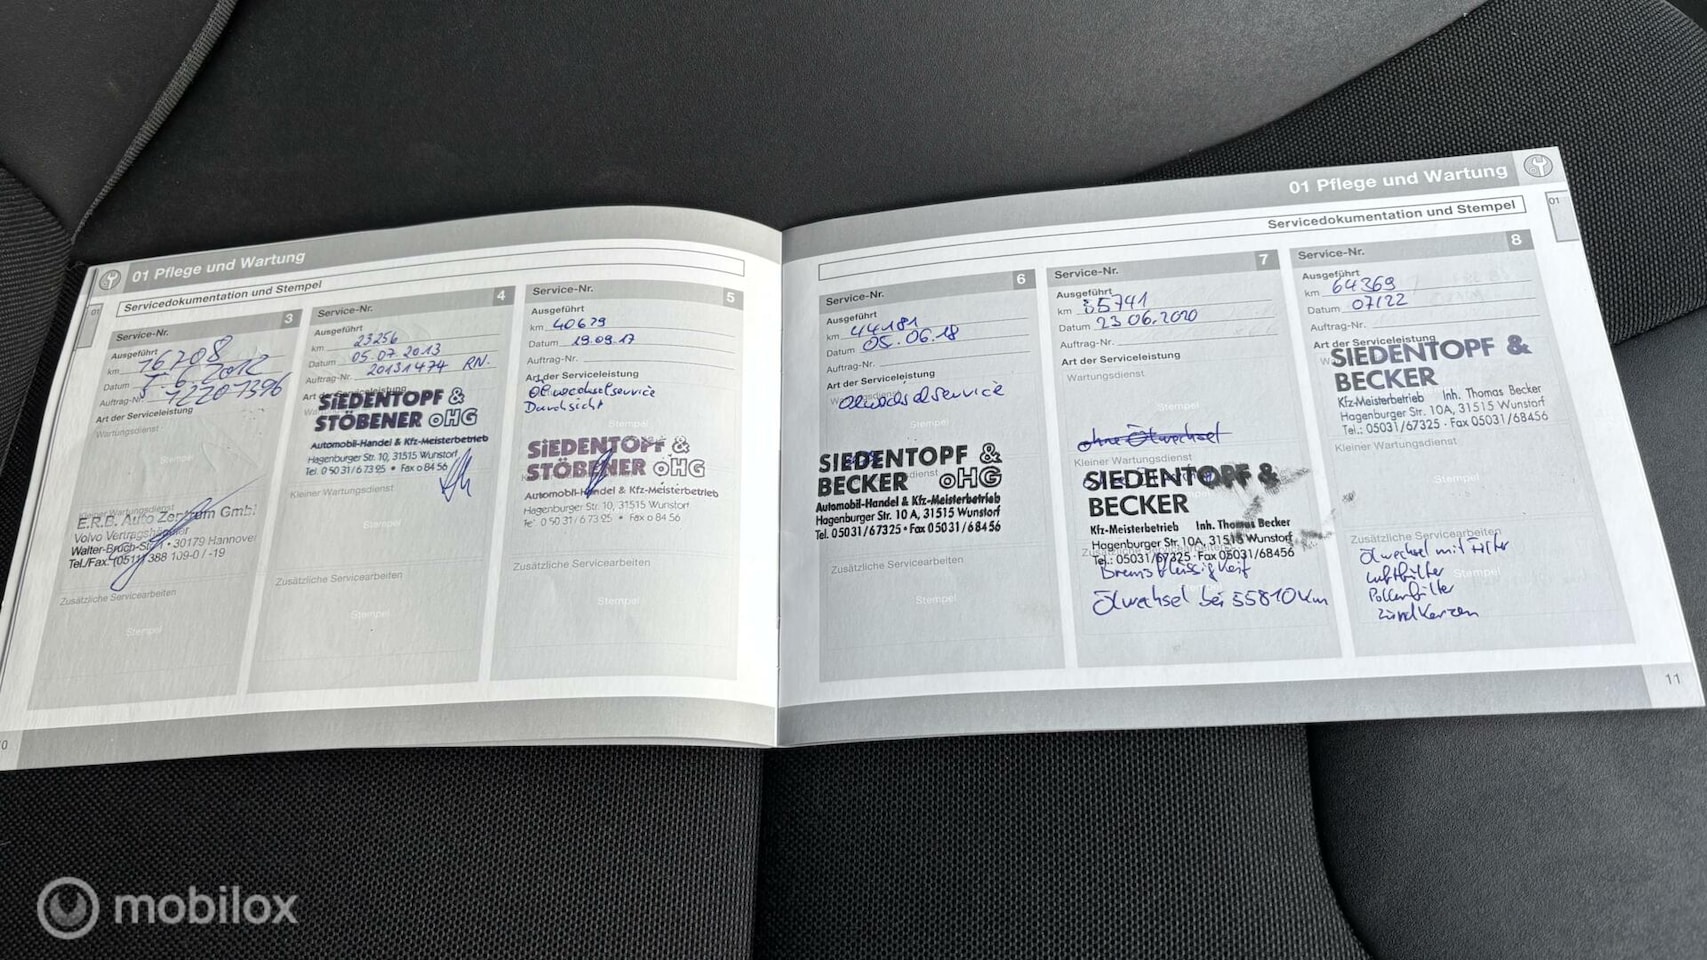 01 Pflege und Wartung
Servicedokumentation und Stempel
Service-Nr. 3
Ausgeführt
km 16208
Datum 5.6.2012
Auftrag-Nr. 12201396
Art der Serviceleistung
Wartungsdienst
Stempel
Kleiner Wartungsdienst
E.R.B. Auto Zentrum GmbH
Volvo Vertragshändler
Walter-Bruch-Str. 1 • 30179 Hannover
Tel./Fax: (0511) 388 109-0 / -19
Zusätzliche Servicearbeiten
Stempel
Service-Nr. 4
Ausgeführt
km 23256
Datum 05.07.2013
Auftrag-Nr. 20131474 RN.
SIEDENTOPF &
STÖBENER oHG
Automobil-Handel & Kfz-Meisterbetrieb
Hagenburger Str. 10, 31515 Wunstorf
Tel. 0 50 31/6 73 95 • Fax 0 84 56
Kleiner Wartungsdienst
Stempel
Zusätzliche Servicearbeiten
Stempel
Service-Nr. 5
Ausgeführt
km 40679
Datum 19.09.17
Auftrag-Nr.
Art der Serviceleistung
Ölwechselservice
Durchsicht
Stempel
SIEDENTOPF &
STÖBENER oHG
Automobil-Handel & Kfz-Meisterbetrieb
Hagenburger Str. 10, 31515 Wunstorf
Tel. 0 50 31/6 73 95 • Fax 0 84 56
Zusätzliche Servicearbeiten
Stempel
01 Pflege und Wartung
01
Servicedokumentation und Stempel
Service-Nr. 6
Ausgeführt
km 44181
Datum 05.06.18
Auftrag-Nr.
Art der Serviceleistung
Ölwechselservice
Stempel
SIEDENTOPF &
BECKER oHG
Automobil-Handel & Kfz-Meisterbetrieb
Hagenburger Str. 10 A, 31515 Wunstorf
Tel. 05031/67325 • Fax 05031/68456
Zusätzliche Servicearbeiten
Stempel
Service-Nr. 7
Ausgeführt
km 55741
Datum 23.06.2020
Auftrag-Nr.
Art der Serviceleistung
Wartungsdienst
Stempel
ohne Ölwechsel
Kleiner Wartungsdienst
SIEDENTOPF &
BECKER
Kfz-Meisterbetrieb Inh. Thomas Becker
Hagenburger Str. 10A, 31515 Wunstorf
Tel.: 05031/67325 · Fax 05031/68456
Bremsflüssigkeit
Ölwechsel bei 55810 Km
Service-Nr. 8
Ausgeführt
km 64369
Datum 07/22
Auftrag-Nr.
Art der Serviceleistung
SIEDENTOPF &
BECKER
Kfz-Meisterbetrieb Inh. Thomas Becker
Hagenburger Str. 10A, 31515 Wunstorf
Tel.: 05031/67325 · Fax 05031/68456
Kleiner Wartungsdienst
Stempel
Zusätzliche Servicearbeiten
Ölwechsel mit Filter
Luftfilter
Stempel
Pollenfilter
Zündkerzen
11
mobilox